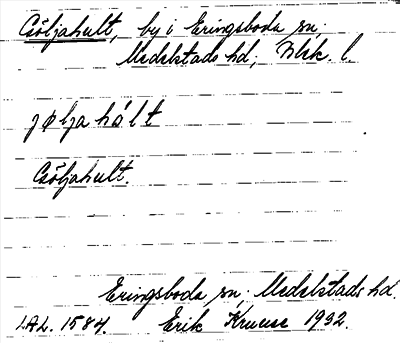 Csöljahult, by i Eringsboda sn.
Medelstads hd, Blek. l.
jøljahålt
Csöljahult.
Eringsboda sn, Medelstads hd.
LAL. 1584. Erik Kruuse 1932.